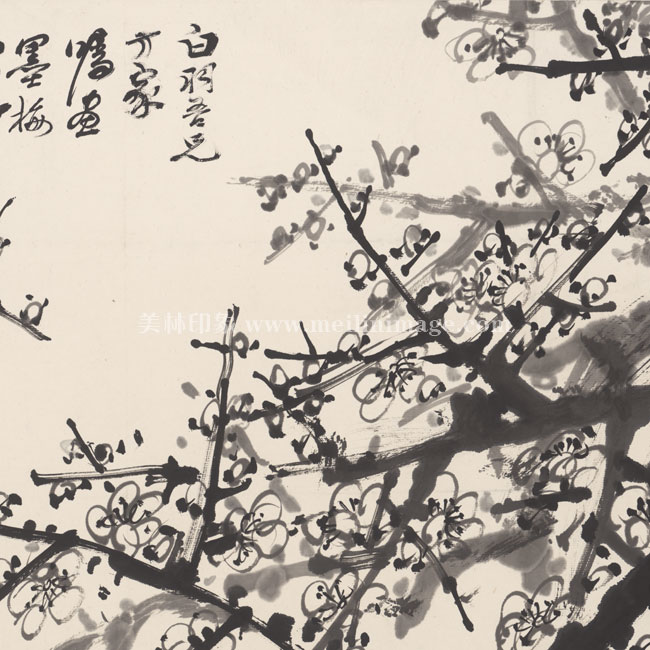 白羽吾兄
方家
嘱画
墨梅
美林印象 www.meilinimage.com